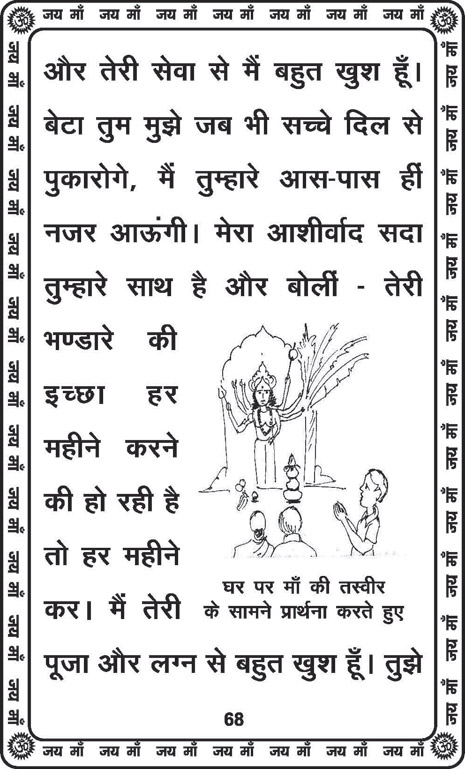 जय माँ जय माँ जय माँ जय माँ जय माँ जय माँ जय माँ
और तेरी सेवा से मैं बहुत खुश हूँ।
बेटा तुम मुझे जब भी सच्चे दिल से
पुकारोगे, मैं तुम्हारे आस-पास हीं
नजर आऊंगी। मेरा आशीर्वाद सदा
तुम्हारे साथ है और बोलीं - तेरी
भण्डारे की
इच्छा हर
महीने करने
की हो रही है
तो हर महीने
कर। मैं तेरी
घर पर माँ की तस्वीर
के सामने प्रार्थना करते हुए
पूजा और लग्न से बहुत खुश हूँ। तुझे
68
जय माँ जय माँ जय माँ जय माँ जय माँ जय माँ जय माँ
जय माँ जय माँ जय माँ जय माँ जय माँ जय माँ जय माँ जय माँ जय माँ जय माँ जय माँ
जय माँ जय माँ जय माँ जय माँ जय माँ जय माँ जय माँ जय माँ जय माँ जय माँ जय माँ
ॐ
ॐ
ॐ
ॐ